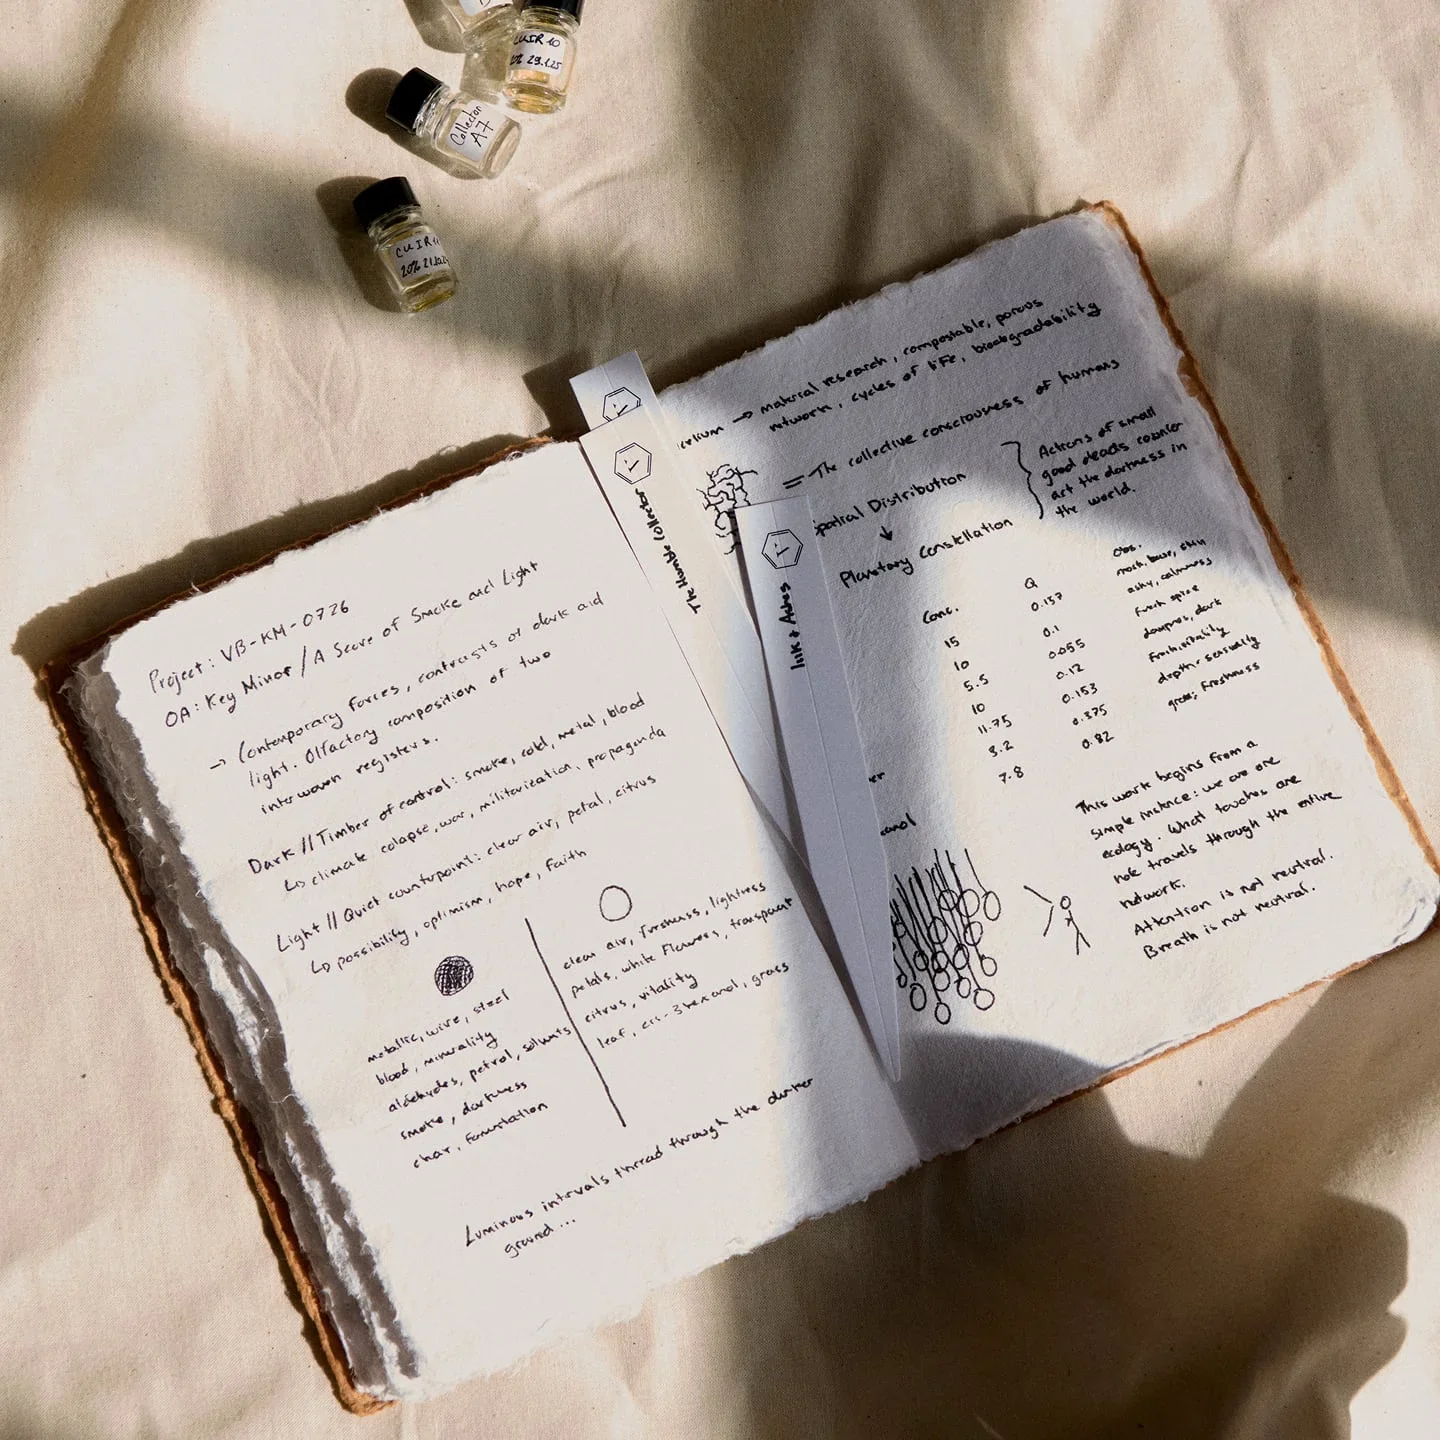 CUIR 10
20% 29.1.25
Collector
A7
CUIR
20%
Project: VB-KM-0726
OA: Key Minor / A Score of Smoke and Light
→ Contemporary forces, contrasts of dark aid
light. Olfactory composition of two
interwoven registers.
Dark // Timber of control: smoke, cold, metal, blood
↳ climate colapse, war, militarization, propaganda
Light // Quiet counterpoint: clear air, petal, citrus
↳ possibility, optimism, hope, faith
metallic, wire, steel
blood, minerality
aldehydes, petrol, solvents
smoke, darkness
char,
clear air, freshness, lightness
petals, white flowers, transparent
citrus, vitality
leaf, cis-3 hexanol, grass
Luminous intervals thread through the darker
ground...
The Humble Collector
Ink & Ashes
celium → material research, compostable, porous
network, cycles of life, biodegradability
= The collective consciousness of humans
Spatial Distribution
↓
Planetary Constellation
Actions of small
good deeds counter
act the darkness in
the world.
Conc. Q Obs.
15 0.137
10 0.1 ashy, calmness
5.5 0.055 Fresh spice
10 0.12 dark
11.75 0.153
3.2 0.375 depth, sensuality
7.8 0.82 green, freshness
er
anol
This work begins from a
simple instance: we are one
ecology. What touches one
node travels through the entire
network.
Attention is not neutral.
Breath is not neutral.